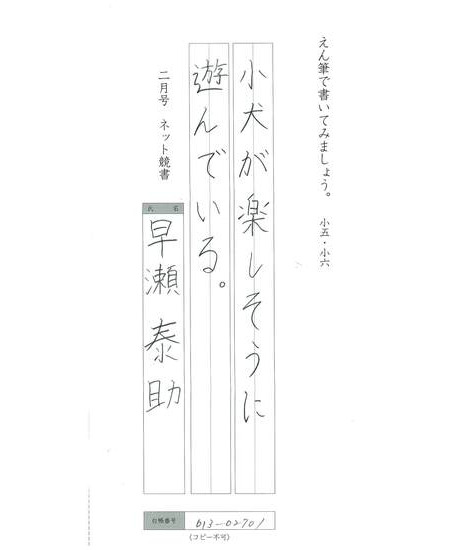 えん筆で書いてみましょう。 小五・小六
小犬が楽しそうに
遊んでいる。
二月号 ネット競書
氏 名
早瀬泰助
台帳番号 613-02701
(コピー不可)